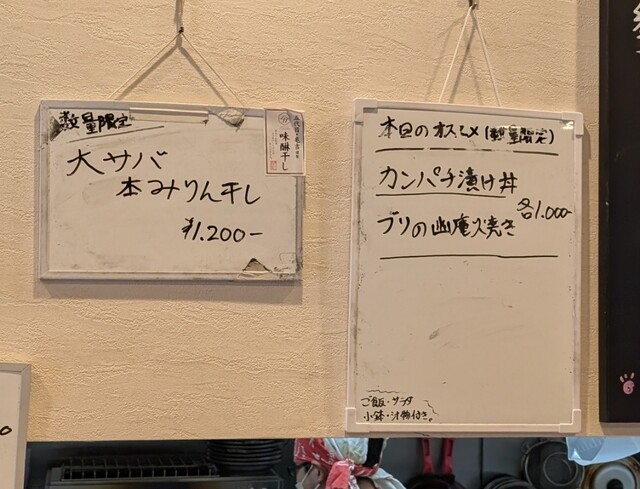 数量限定
大サバ
本みりん干し
¥1.200-
味醂干し
本日のオススメ(数量限定)
カンパチ漬け丼
各1.000-
ブリの幽庵焼き
ご飯・サラダ
小鉢・汁物付き。